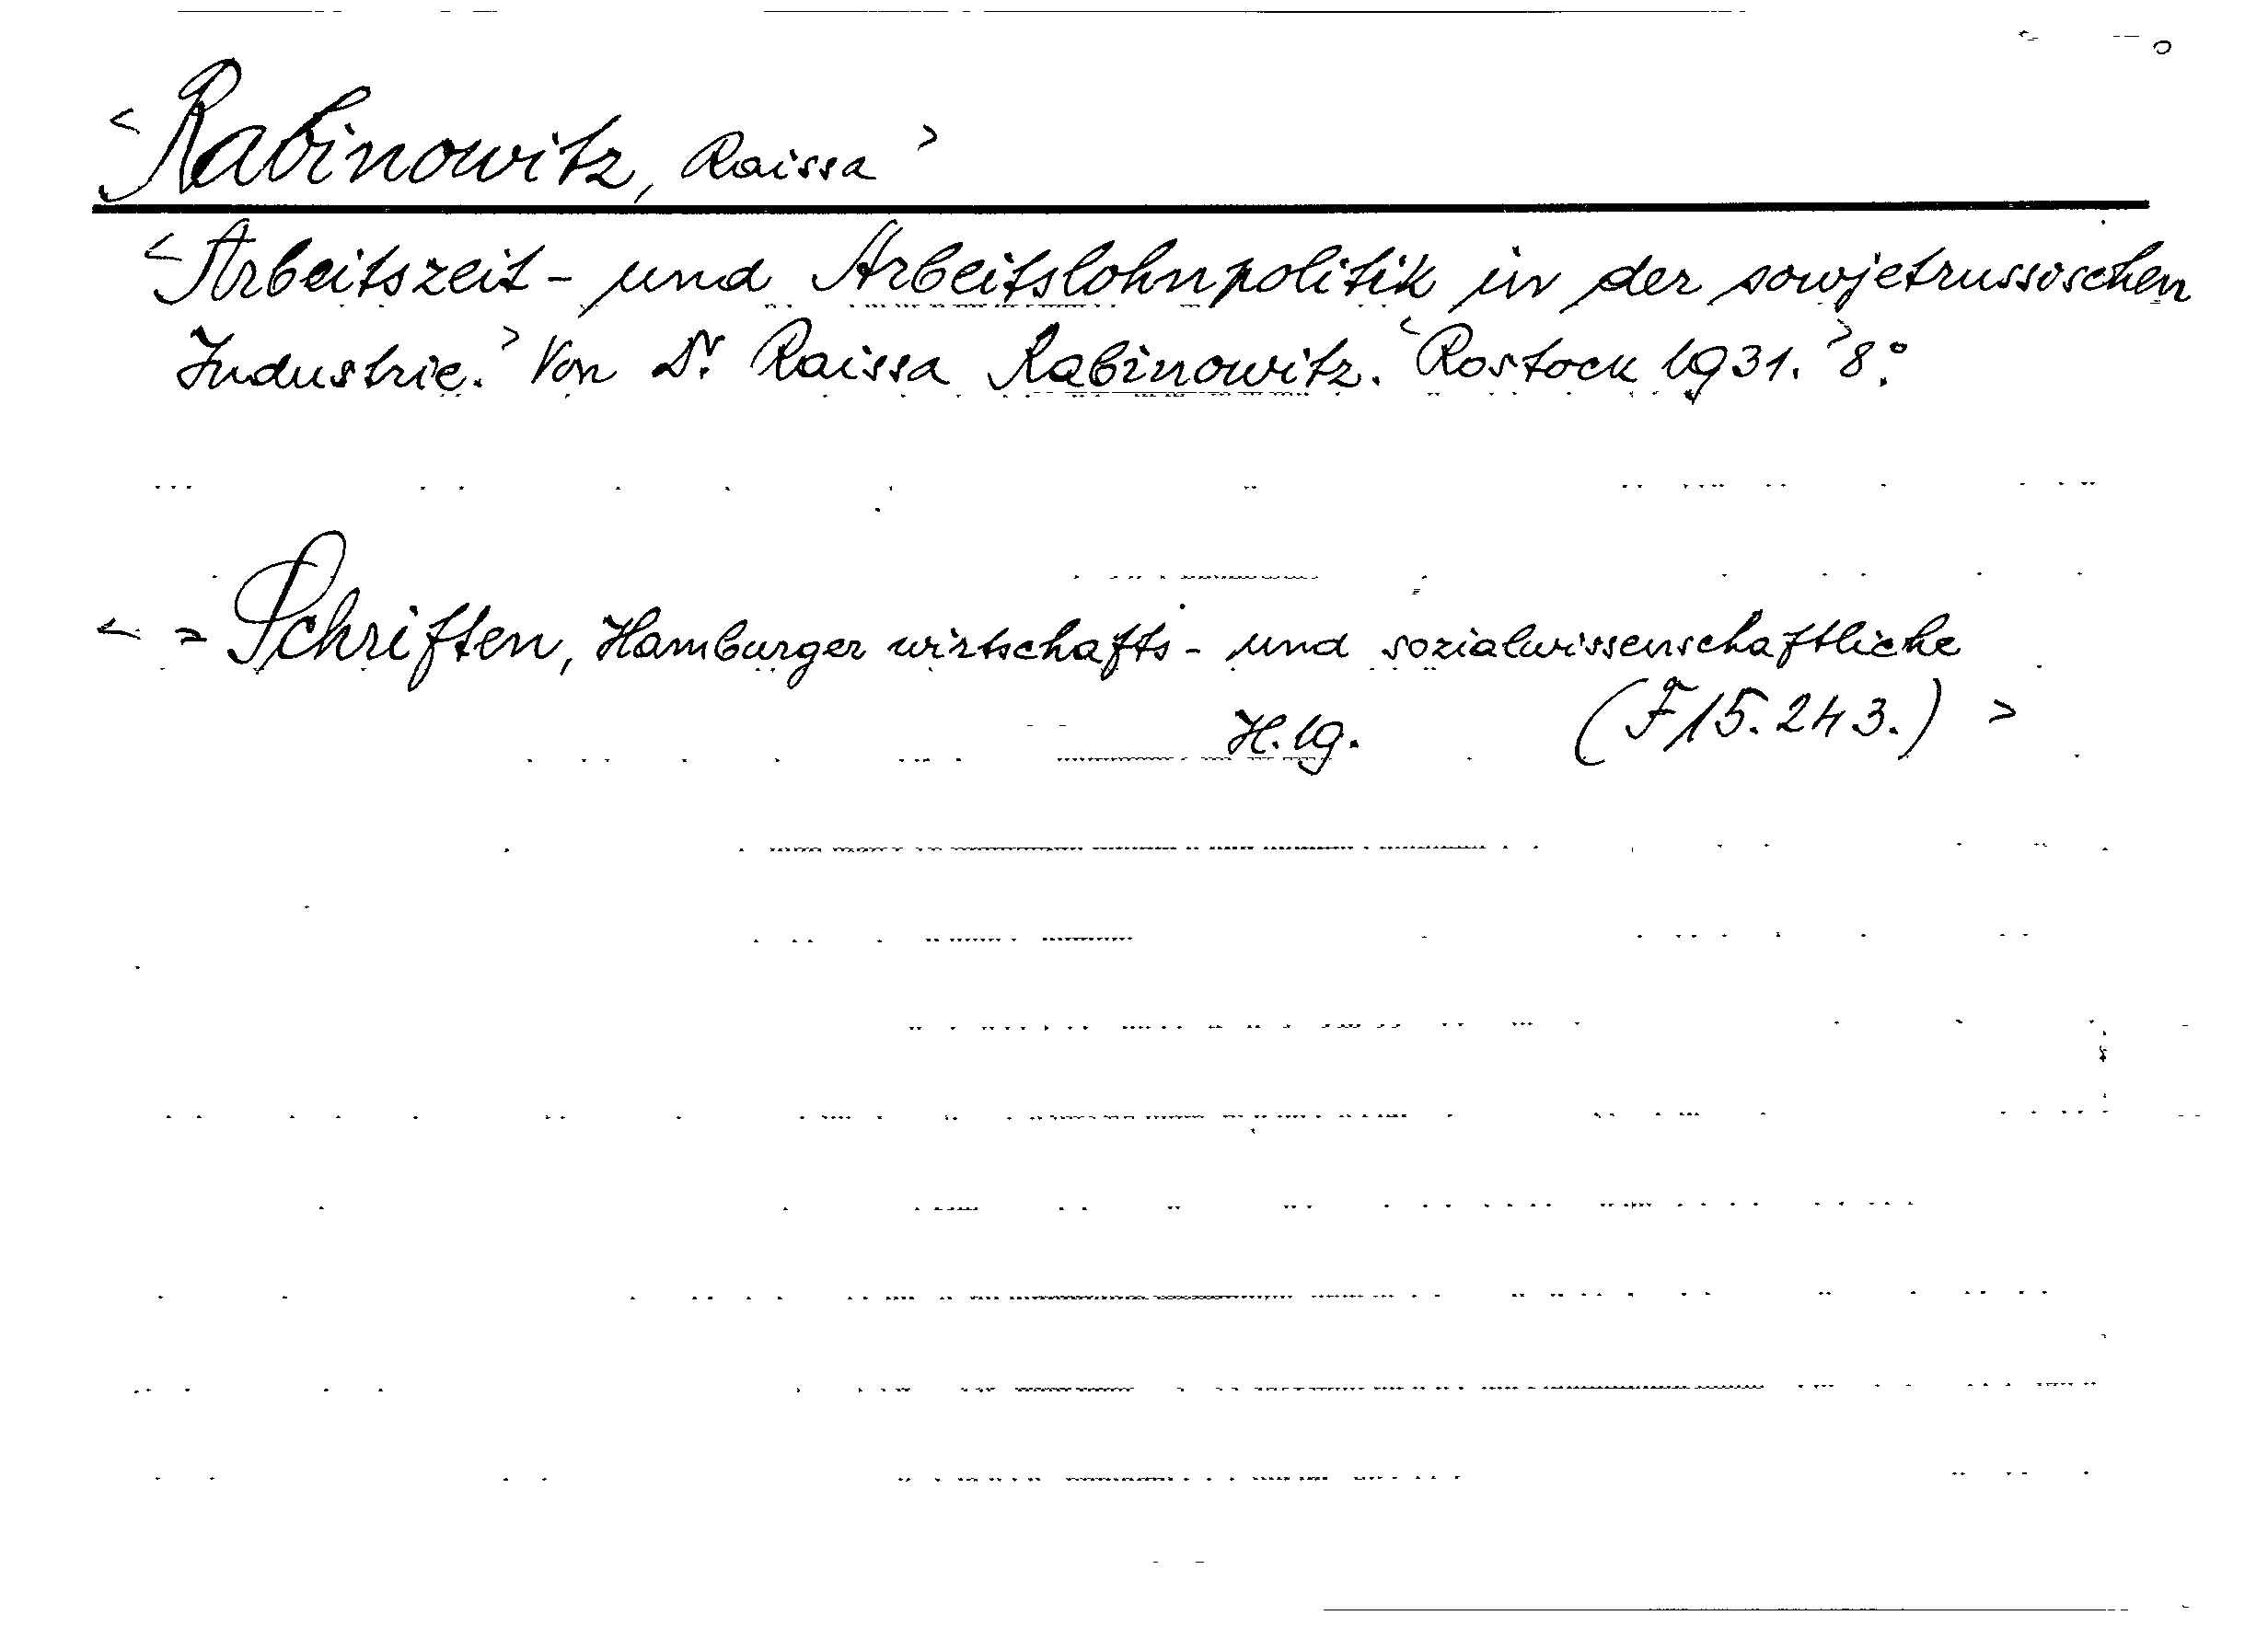 <Rabinowitz, Raissa>
<Arbeitszeit- und Arbeitslohnpolitik in der sowjetrussischen
Industrie.> Von Dr. Raissa Rabinowitz. <Rostock 1931.> 8°.
< = Schriften, Hamburger wirtschafts- und sozialwissenschaftliche
H. 19. (F 15.243.) >